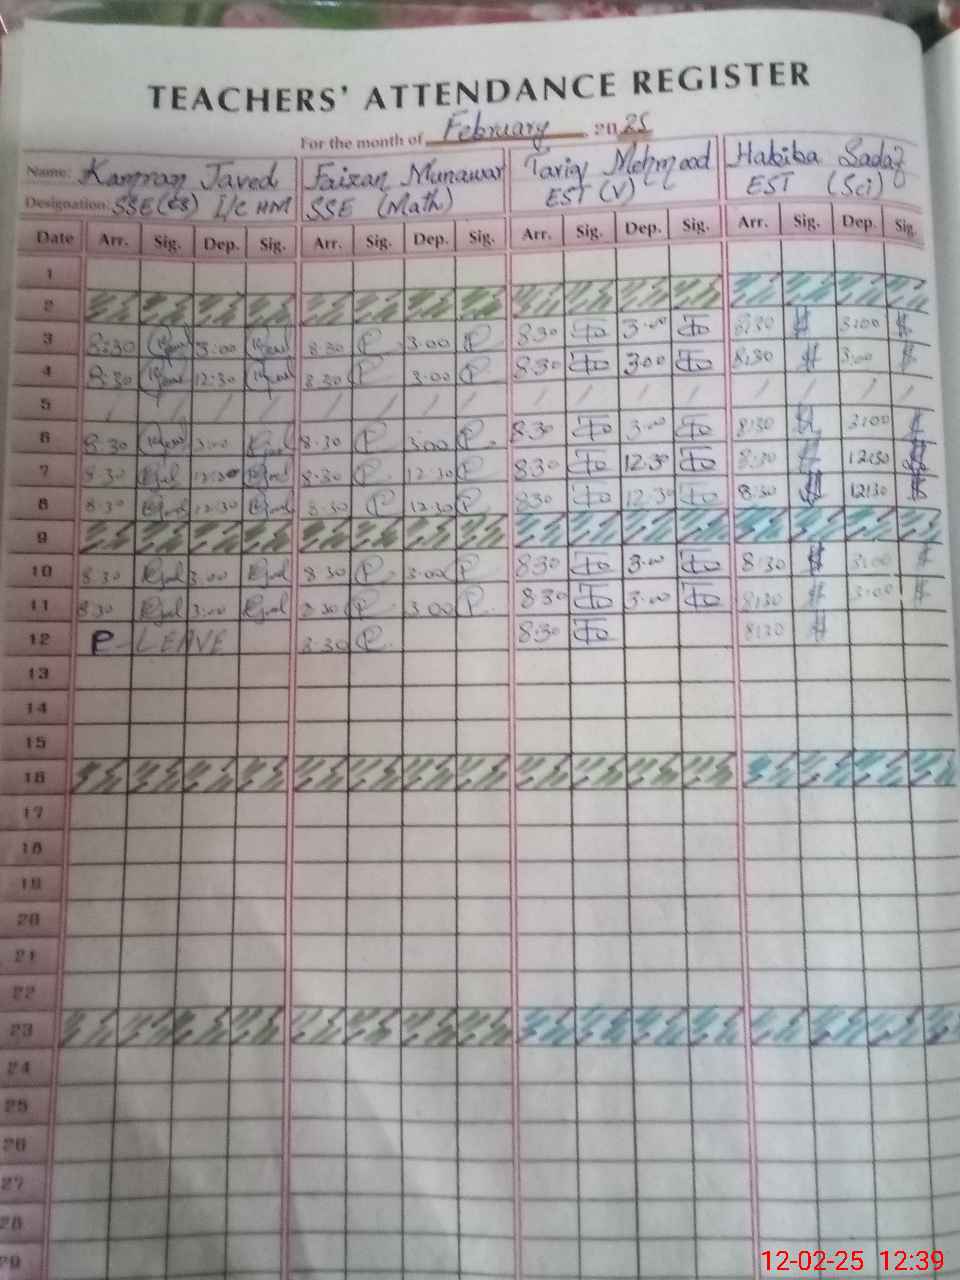 TEACHERS' ATTENDANCE REGISTER
For the month of February 2025
Name: Kamran Javed Faizan Munawar Tariq Mehmood Habiba Sadaf
Designation: SSE(CS) I/C HM SSE (Math) EST (V) EST (Sci)
Date Arr. Sig. Dep. Sig. Arr. Sig. Dep. Sig. Arr. Sig. Dep. Sig. Arr. Sig. Dep. Sig.
1
2
3 8:30 3:00 8:30 3:00 8:30 3:00 8:30 3:00
4 8:30 12:30 8:30 3:00 8:30 3:00 8:30 3:00
5 / / / / / / / / / / / / / / / /
6 8:30 3:00 8:30 3:00 8:30 3:00 8:30 3:00
7 8:30 12:30 8:30 12:30 8:30 12:30 8:30 12:30
8 8:30 12:30 8:30 12:30 8:30 12:30 8:30 12:30
9
10 8:30 3:00 8:30 3:00 8:30 3:00 8:30 3:00
11 8:30 3:00 8:30 3:00 8:30 3:00 8:30 3:00
12 P-LEAVE 8:30 8:30 8:30
13
14
15
16
17
18
19
20
21
22
23
24
25
26
27
28
29
12-02-25 12:39